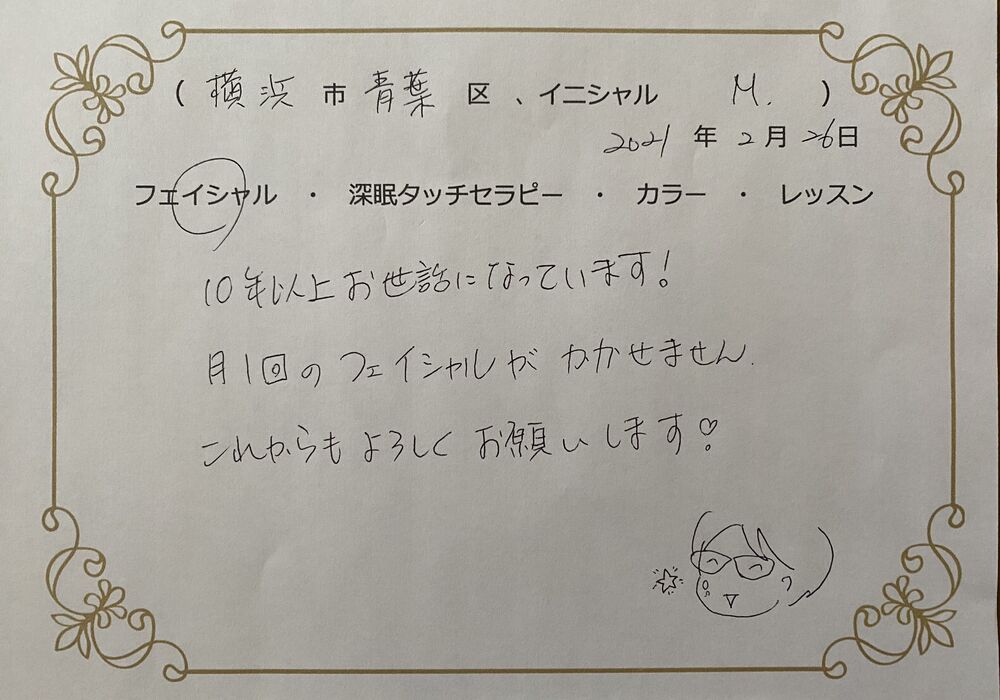 （ 横浜 市 青葉 区 、イニシャル M. ）
2021 年 2 月 26日
フェイシャル ・ 深眠タッチセラピー ・ カラー ・ レッスン
10年以上お世話になっています!
月1回のフェイシャルがかかせません.
これからもよろしくお願いします♡